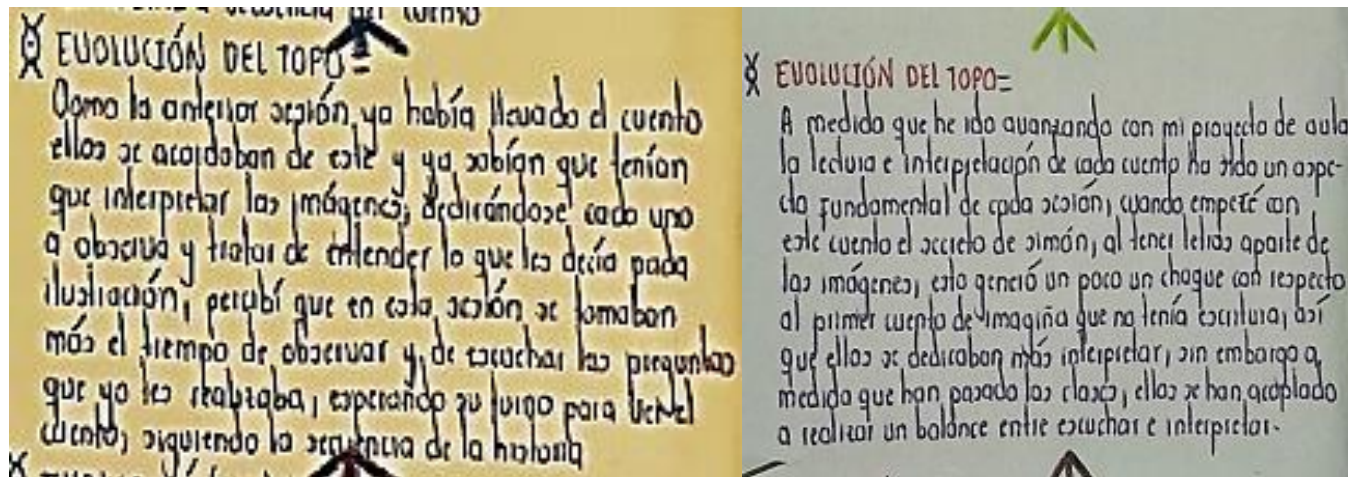 secuencia del cuento
EVOLUCIÓN DEL TOPO=
Como la anterior sesión, ya había llevado el cuento
ellos se acordaban de este y ya sabían que tenían
que interpretar las imágenes, dedicándose cada uno
a observa y tratar de entender lo que les decía cada
ilustración, percibí que en esta sesión se tomaban
más el tiempo de observar y, de escuchar las preguntas
que yo les realizaba, esperando su turno para ver el
cuento, siguiendo la secuencia de la historia
EVOLUCIÓN DEL TOPO=
A medida que he ido avanzando con mi proyecto de aula
la lectura e interpretación de cada cuento ha sido un aspe-
cto fundamental de cada sesión, cuando empecé con
este cuento el secreto de simón, al tener letras aparte de
las imágenes, esto generó un poco un choque con respecto
al primer cuento de Imagina que no tenía escritura, así
que ellos se dedicaban más interpretar, sin embargo a
medida que han pasado las clases, ellos se han acoplado
a realizar un balance entre escuchar e interpretar.